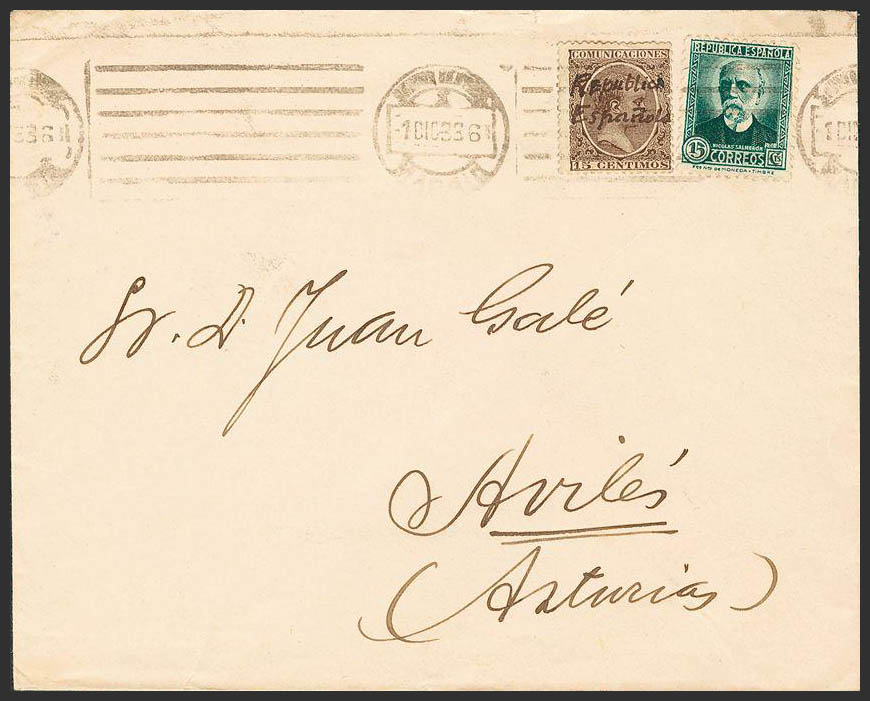 COMUNICACIONES
República
Española
15 CENTIMOS
REPUBLICA ESPAÑOLA
NICOLAS SALMERON
15 CORREOS Cts
-1 DIC 33 6
Sr. D. Juan Galé
Avilés
(Asturias)